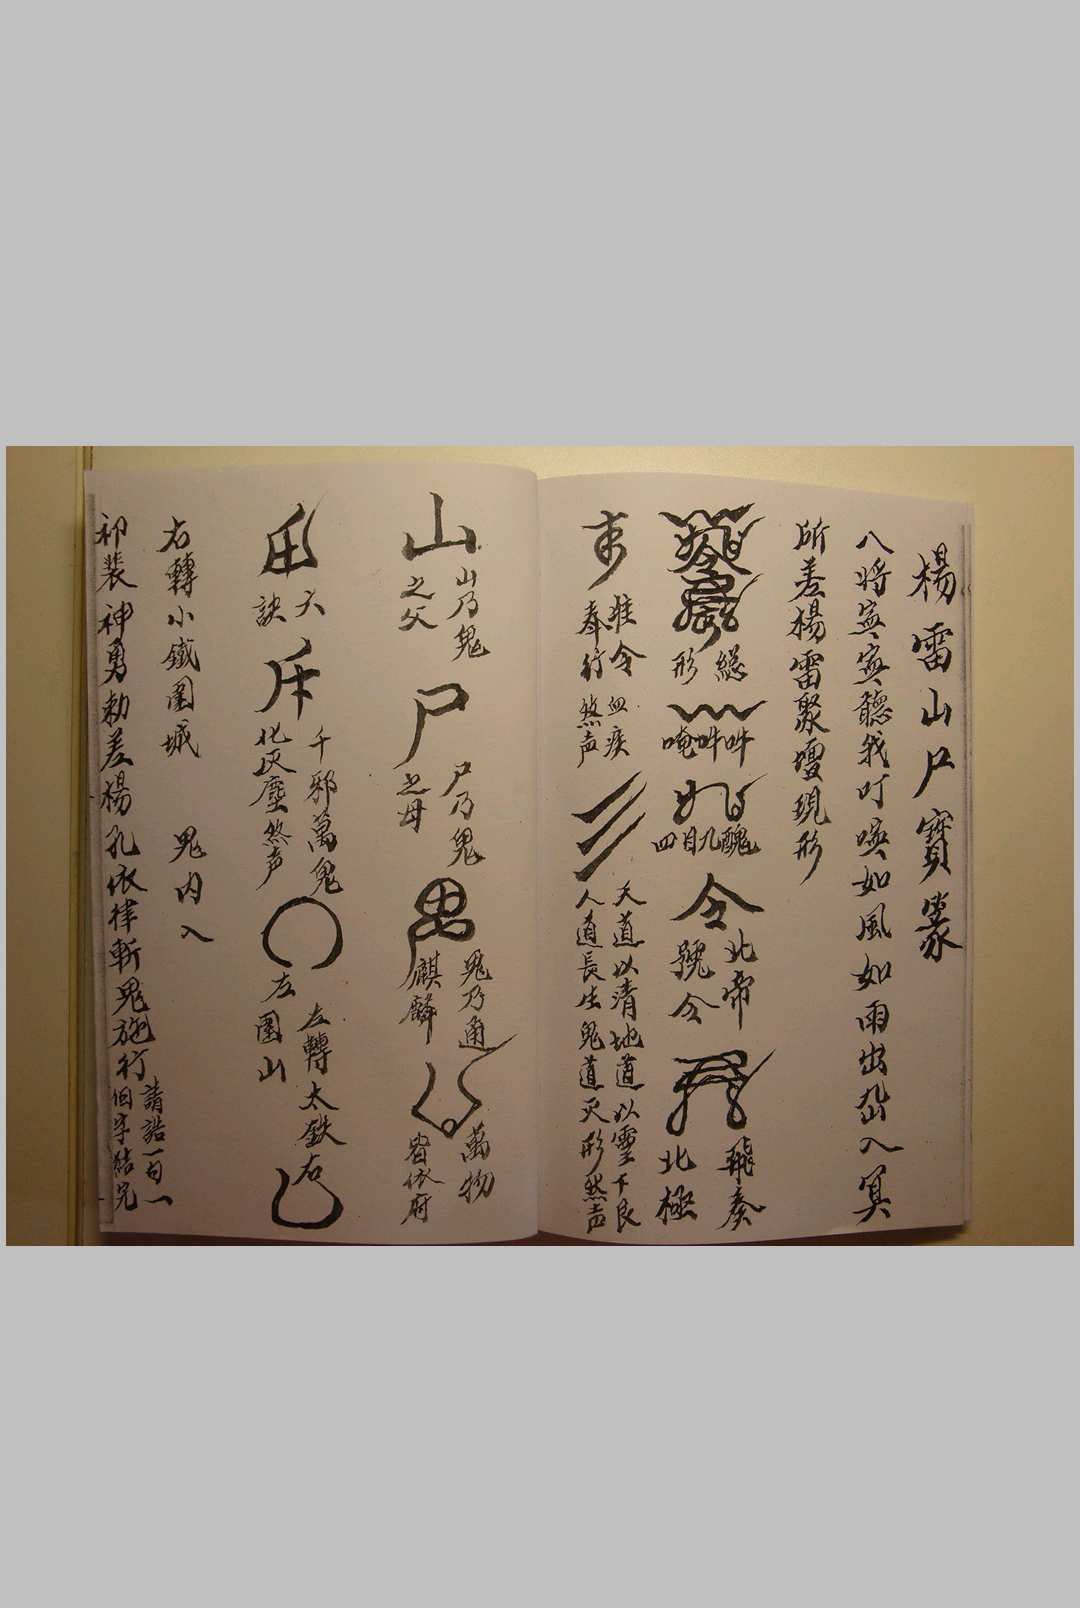 楊雷山尸寶篆
八將寔寔聽我叮嚀如風如雨出幽入冥
所差楊雷聚壇現形
總形
唵吽吽
四目九醜
令
北帝號令
飛奏北極
准令奉行
血疾煞声
天道以清地道以寧下民
人道長生鬼道灭形煞声
山
山乃鬼之父
尸
尸乃鬼之母
鬼乃通麒麟
萬物皆依府
六訣
斥
千邪萬鬼化灰塵煞声
左轉太鉄
左圍山
右
右轉小鐵圍城 鬼内入
神勇勅差楊孔依律斬鬼施行
請誥一句一